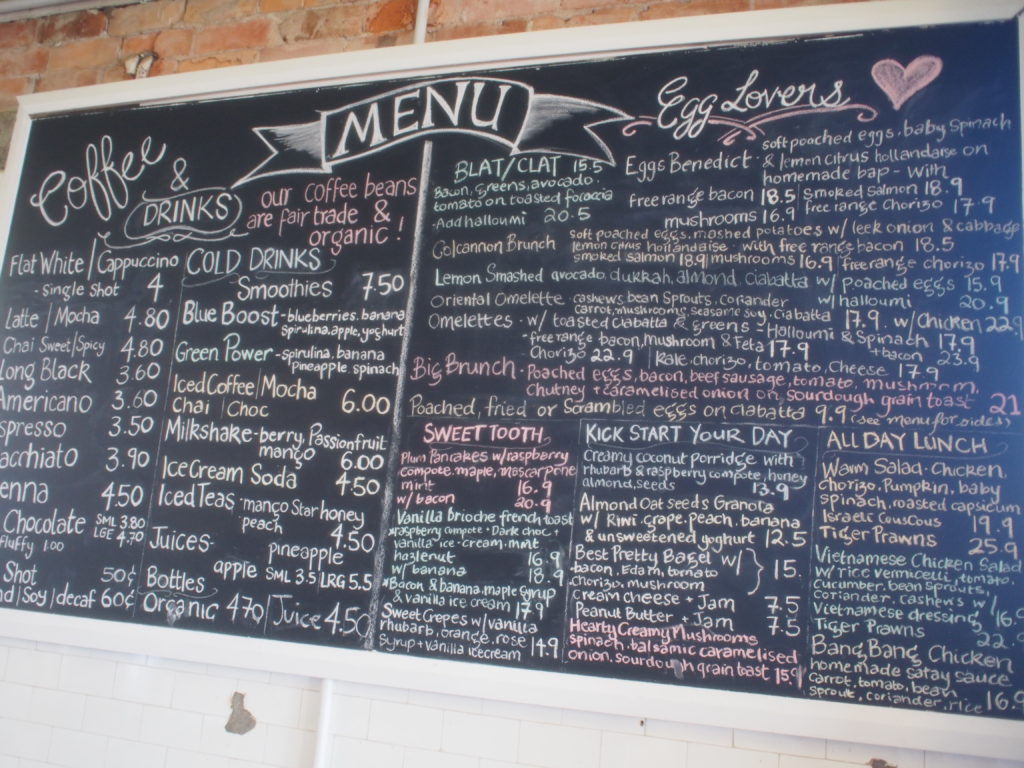 MENU
Coffee
&
DRINKS
our coffee beans
are fair trade &
organic!
Flat White / Cappuccino
- Single Shot 4
Latte / Mocha 4.80
Chai Sweet/Spicy 4.80
Long Black 3.60
Americano 3.60
spresso 3.50
acchiato 3.90
enna 4.50
Chocolate SML 3.80
LGE 4.70
fluffy 1.00
Shot 50¢
/Soy/decaf 60¢
COLD DRINKS
Smoothies 7.50
Blue Boost - blueberries, banana
spirulina, apple, yoghurt
Green Power - spirulina, banana
pineapple spinach
Iced Coffee / Mocha
Chai / Choc 6.00
Milkshake - berry, Passionfruit
mango 6.00
Ice Cream Soda 4.50
Iced Teas - mango Star honey
peach 4.50
Juices - pineapple
apple SML 3.5 LRG 5.5
Bottles
Organic 4.70 / Juice 4.50
Egg Lovers
BLAT/CLAT 15.5
Bacon, greens, avocado.
tomato on toasted foraccia
- Add halloumi 20.5
Eggs Benedict - soft poached eggs, baby spinach
& lemon citrus hollandaise on
homemade bap - with
free range bacon 18.5 | Smoked Salmon 18.9
mushrooms 16.9 / free range Chorizo 17.9
Colcannon Brunch soft poached eggs, mashed potatoes w/ leek onion & cabbage
lemon citrus hollandaise - with free range bacon 18.5
smoked salmon 18.9 | mushrooms 16.9 / free range chorizo 17.9
Lemon Smashed avocado, dukkah, almond, ciabatta w/ poached eggs 15.9
w/ halloumi 20.9
Oriental Omelette - cashews, bean Sprouts, coriander
carrot, mushrooms, seasame soy, Ciabatta 17.9. w/ Chicken 22.9
Omelettes - w/ toasted Ciabatta & greens - Halloumi & Spinach 17.9
- free range bacon, Mushroom & Feta 17.9 + bacon 23.9
Chorizo 22.9 | Kale, chorizo, tomato, Cheese 17.9
Big Brunch - Poached eggs, bacon, beef sausage, tomato, mushroom,
Chutney + caramelised onion on sourdough grain toast 21
Poached, fried or Scrambled eggs on ciabatta 9.9 (see menu for sides)
SWEET TOOTH
Plum Pancakes w/ raspberry
compote, maple, mascarpone
mint 16.9
w/ bacon 20.9
Vanilla brioche french toast
raspberry compote, Dark choc +
vanilla ice-cream, mint
hazelnut 16.9
w/ banana 18.9
*Bacon & banana, maple syrup
& vanilla ice cream 17.9
Sweet Crepes w/ vanilla
rhubarb, orange, rose
syrup + vanilla icecream 14.9
KICK START YOUR DAY
Creamy coconut porridge with
rhubarb & raspberry compote, honey
almond, seeds 13.9
Almond Oat seeds Granola
w/ Kiwi, grape, peach, banana
& unsweetened yoghurt 12.5
Best Pretty Bagel w/
bacon, Edam, tomato
chorizo, mushroom 15.
cream cheese + Jam 7.5
Peanut Butter + Jam 7.5
Hearty Creamy Mushrooms
spinach, balsamic caramelised
onion, sourdough grain toast 15.9
ALL DAY LUNCH
Warm Salad - Chicken,
Chorizo, Pumpkin, baby
spinach, roasted capsicum
Israeli Couscous 19.9
Tiger Prawns 25.9
Vietnamese Chicken Salad
w/ rice vermicelli, tomato,
cucumber, bean sprouts,
coriander, cashews w/
Vietnamese dressing 16.9
Tiger Prawns 22.
Bang Bang Chicken
homemade satay sauce
carrot, tomato, bean
sprouts, coriander, rice 16.9